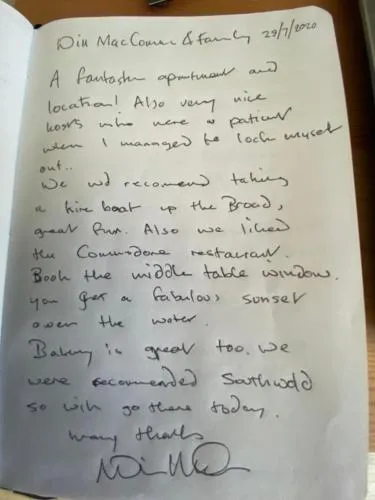 MacConn & Family 29/7/2020
A fantastic apartment and
location! Also very nice
hosts who were patient
when I managed to lock myself
out..
We wd recomend taking
a hire boat up the Broad,
great fun. Also we liked
the Commodore restaurant.
Book the middle table window.
you get a fabulous sunset
over the water.
Bakery is great too. We
were recommended Southwold
so will go there today.
many thanks